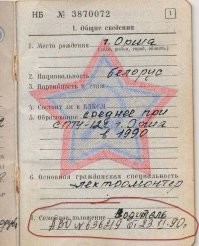 НБ № 3870072
1
I. Общие сведения
1. Место рождения г. Орша
(село, район, город, область)
2. Национальность белорус
3. Партийность и стаж
4. Состоит ли в ВЛКСМ
5. Образование среднее при
СПТУ-129 г. Орша
в 1990
6. Основная гражданская специальность
электромонтер
8. Семейное положение Водитель
№ 636319 от 23.11.90г.